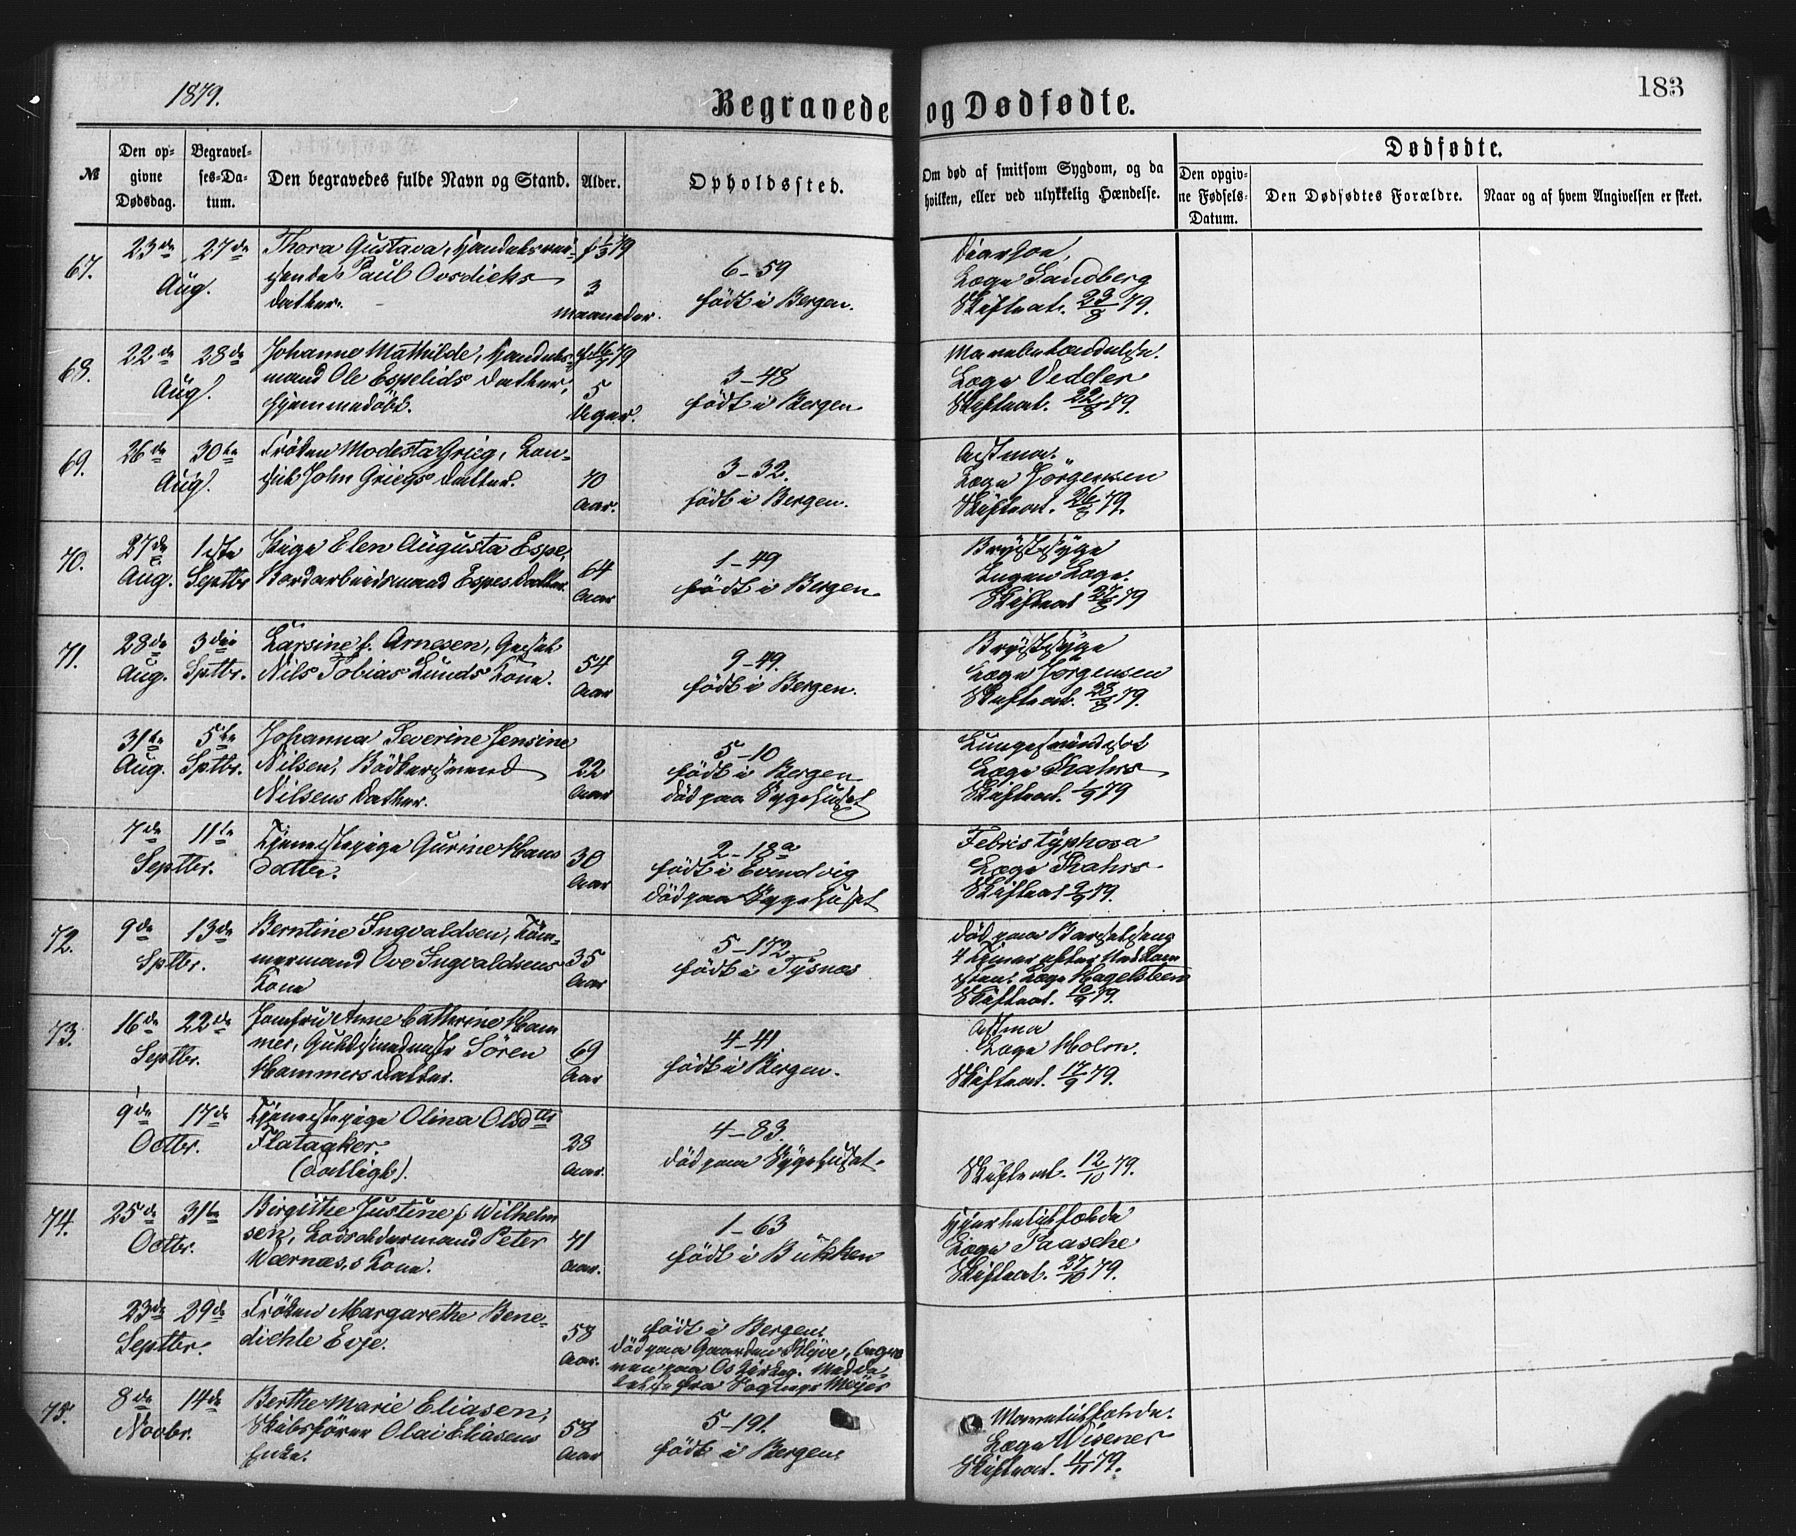 1879.
Begravede og Dødfødte.
183
№
Den opgivne Dødsdag.
Begravelses-Datum.
Den begravedes fulde Navn og Stand.
Alder.
Opholdssted.
Om død af smitsom Sygdom, og da hvilken, eller ved ulykkelig Hændelse.
Dødfødte.
Den opgivne Fødsels-Datum.
Den Dødfødtes Forældre.
Naar og af hvem Angivelsen er skeet.
67.
23de 27de
Aug.
Thora Gustava, Handelsrei-
sende Paul Ovsdichs
Datter.
3
Maaneder.
6-59
født i Bergen.
Diarhoe,
Læge Sandberg
Skifteat. 23/8 79.
68.
22de 28de
Aug.
Johanne Mathilde, Handels-
mand Ole Espelids Datter,
hjemmedøbt.
5
Uger.
3-48
født i Bergen
Læge Vedeler
Skifteat. 22/8 79.
69.
26de 30te
Aug.
Frøken Modesta Grieg, Kon-
sul John Griegs Datter.
70
Aar.
3-32.
født i Bergen.
Astma.
Læge Jörgensen
Skifteat. 26/8 79.
70.
27de 1ste
Aug. Septbr
Pige Elen Augusta Espe,
Bordarbeidsmand Espes Datter.
64
Aar
1-49
født i Bergen.
Brystsyge
Ingen Læge.
Skifteat 27/8 79
71.
28de 3die
Aug. Sptbr.
Larsine f. Arnesen, Gartl.
Nils Tobias Lunds Kone.
54
Aar
9-49.
født i Bergen.
Brystsyge
Læge Jörgensen
Skifteat. 28/8 79.
31te 5te
Aug. Sptbr.
Johanna Severine Jensine
Nilsen, Bödkersvend
Nilsens Datter.
22
Aar
5-10
født i Bergen
død paa Sygehuset
Læge Kahrs
Skifteat. 1/9 79
7de 11te
Septbr.
Tjenestepige Gurine Hans
Datter.
30
Aar
2-18a
født i Evendvig
død paa Sygehuset
Febris typhosa
Læge Kahrs
Skifteat 9/9 79.
72.
9de 13de
Sptbr.
Berntine Ingvaldsen, Töm-
mermand Ove Ingvaldsens
Kone
35
Aar
5-172
født i Tysnæs
død paa Barselseng
4 Timer efter Nedkom
sten. Læge Hagelsteen
Skifteat. 10/9 79.
73.
16de 22de
Septbr.
Jomfru Anne Cathrine Ham
mer, Guldsmedmester Sören
Hammers Datter.
69
Aar
4-41
født i Bergen.
Astma
Læge Holm.
Skifteat. 17/9 79.
9de 17de
Octbr.
Tjenestepige Olina Olsdtr
Flatagker.
(Dalligh).
28
Aar.
4-83.
død paa Sygehuset.
Skifteat. 12/10 79.
74.
25de 31te
Octbr.
Birgithe Justine f. Wilhelm
sen, Lodsoldermand Peter
Wærnæss Kone.
71
Aar.
1-63
født i Bukken
Hjertelidelse
Læge Paasche
Skifteat. 27/10 79.
23de 29de
Septbr.
Frøken Margarethe Bene-
dichte Evje.
58
Aar.
født i Bergen.
død paa Gaarden Klyve, begra
ven paa Os Kirkeg. Medde-
lelse fra Sogneps Meyer
75.
8de 14de
Novbr.
Berthe Marie Eliasen,
Skibsförer Olai Eliasens
Enke.
58
Aar
5-191.
født i Bergen.
Læge Wisener
Skifteat. 11/11 79.